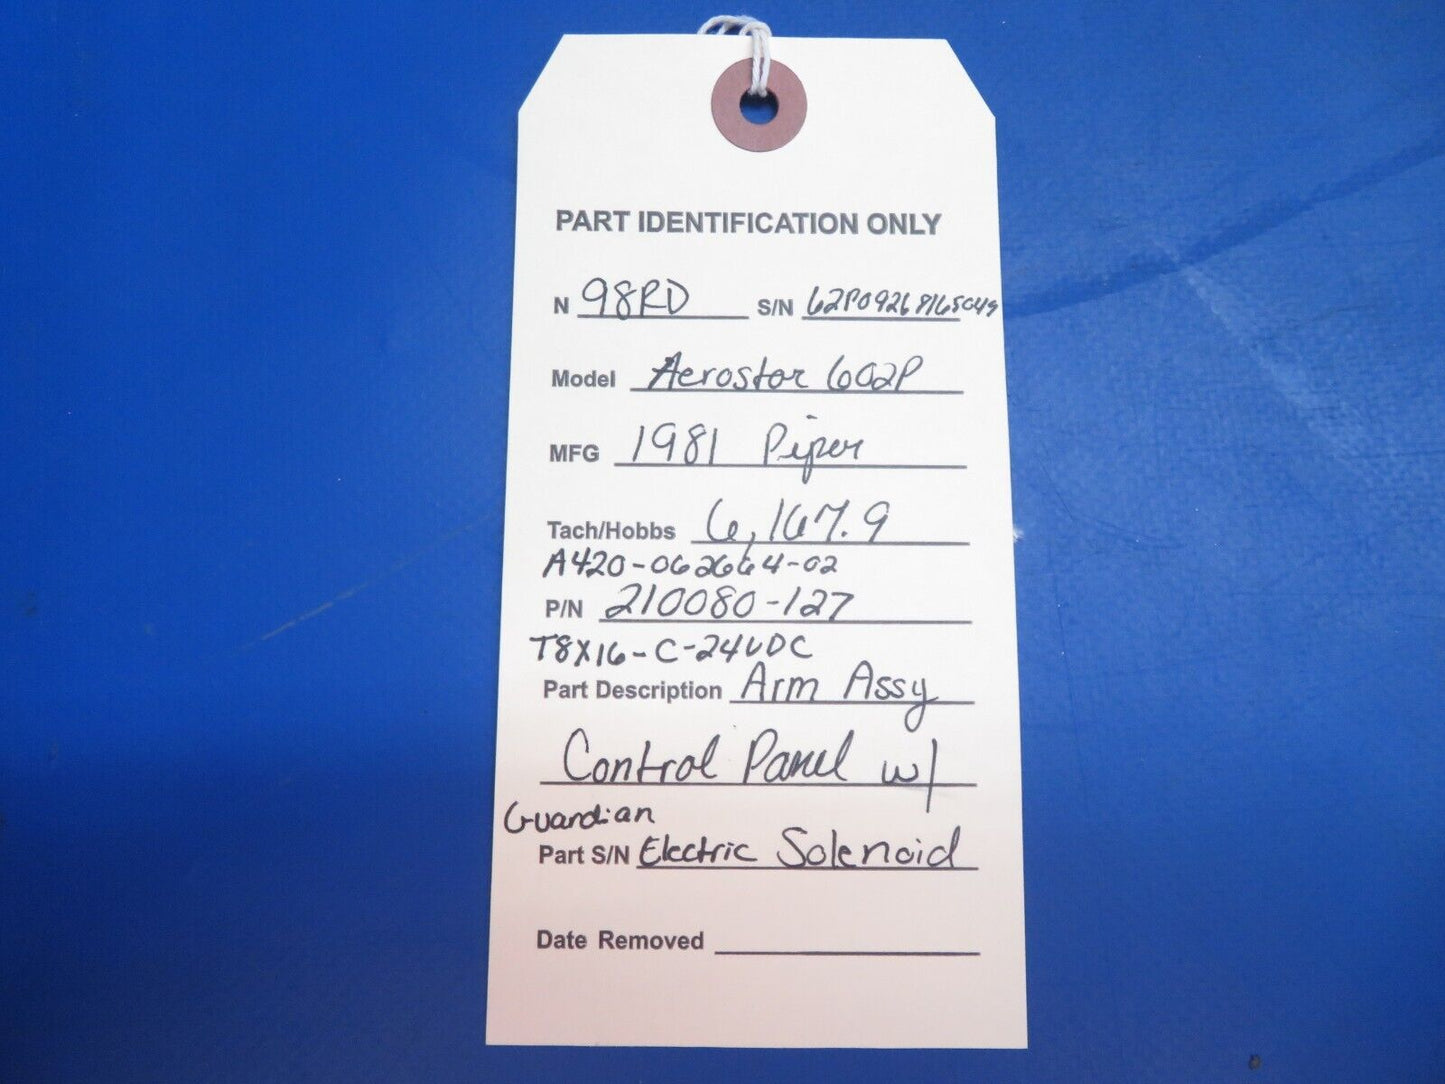 PART IDENTIFICATION ONLY
N 98RD S/N 62P0926 8165049
Model Aerostar 602P
MFG 1981 Piper
Tach/Hobbs 6,167.9
A420-062664-02
P/N 210080-127
T8X16-C-24VDC
Part Description Arm Assy
Control Panel w/
Guardian
Part S/N Electric Solenoid
Date Removed